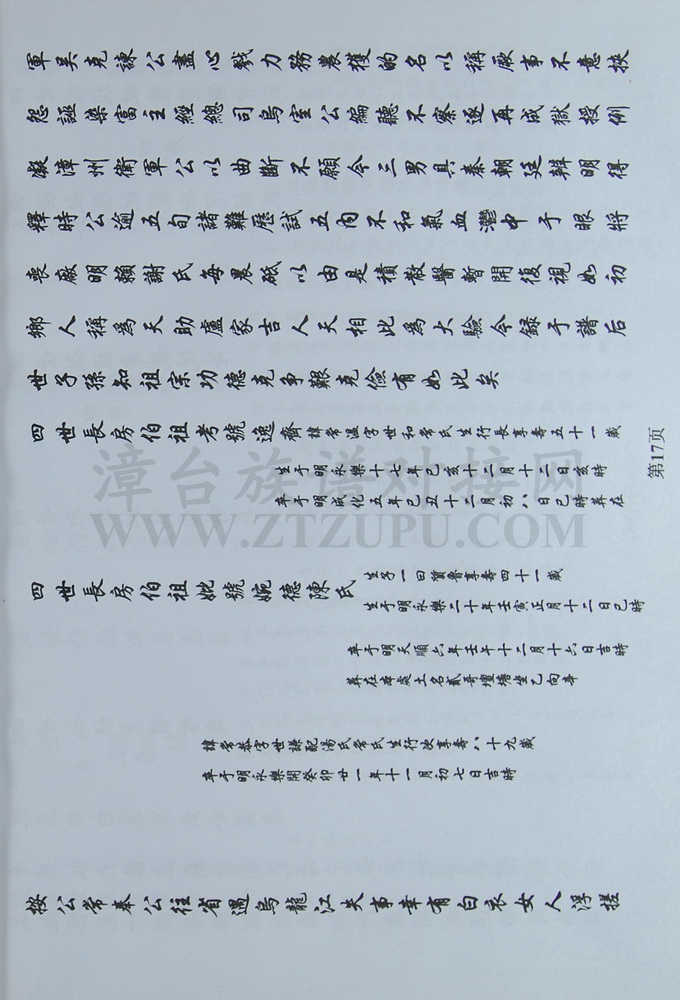 軍吴克諫公盡心戮力務農獲的名以稱厥事不意挾
怨誣染富主經總司烏室公編聽不察遂再成獄投例
擬漳州衛軍公以曲斷不願令三男具奏朝廷辨明得
釋時公逾五旬諸難歷試五內不和氣血灃中于眼將
喪厥明賴謝氏每晨砥以由是積散醫暫開復視如初
鄉人稱為天助盧家吉人天相此為大驗今録于譜后
世子孫知祖宗功德克事艱克儉有如此矣
四世長房伯祖考號逸齋諱常溫字世和常氏生行長享壽五十一歲
生于明永樂十七年己亥十二月十二日亥時
卒于明成化五年己丑十二月初八日巳時葬在
四世長房伯祖妣號婉德陳氏生子一曰賓魯享壽四十一歲
生于明永樂二十年壬寅正月十二日巳時
卒于明天順六年壬午十二月十六日吉時
葬在庵處土名貳哥壇塘坐乙向辛
諱常恭字世謙配湯氏常氏生行次享壽八十九歲
卒于明永樂開癸卯廿一年十一月初七日吉時
按公常奉公往省遇烏龍江失事幸有白衣女人浮搓
第17页
漳台族谱对接网
WWW.ZTZUPU.COM